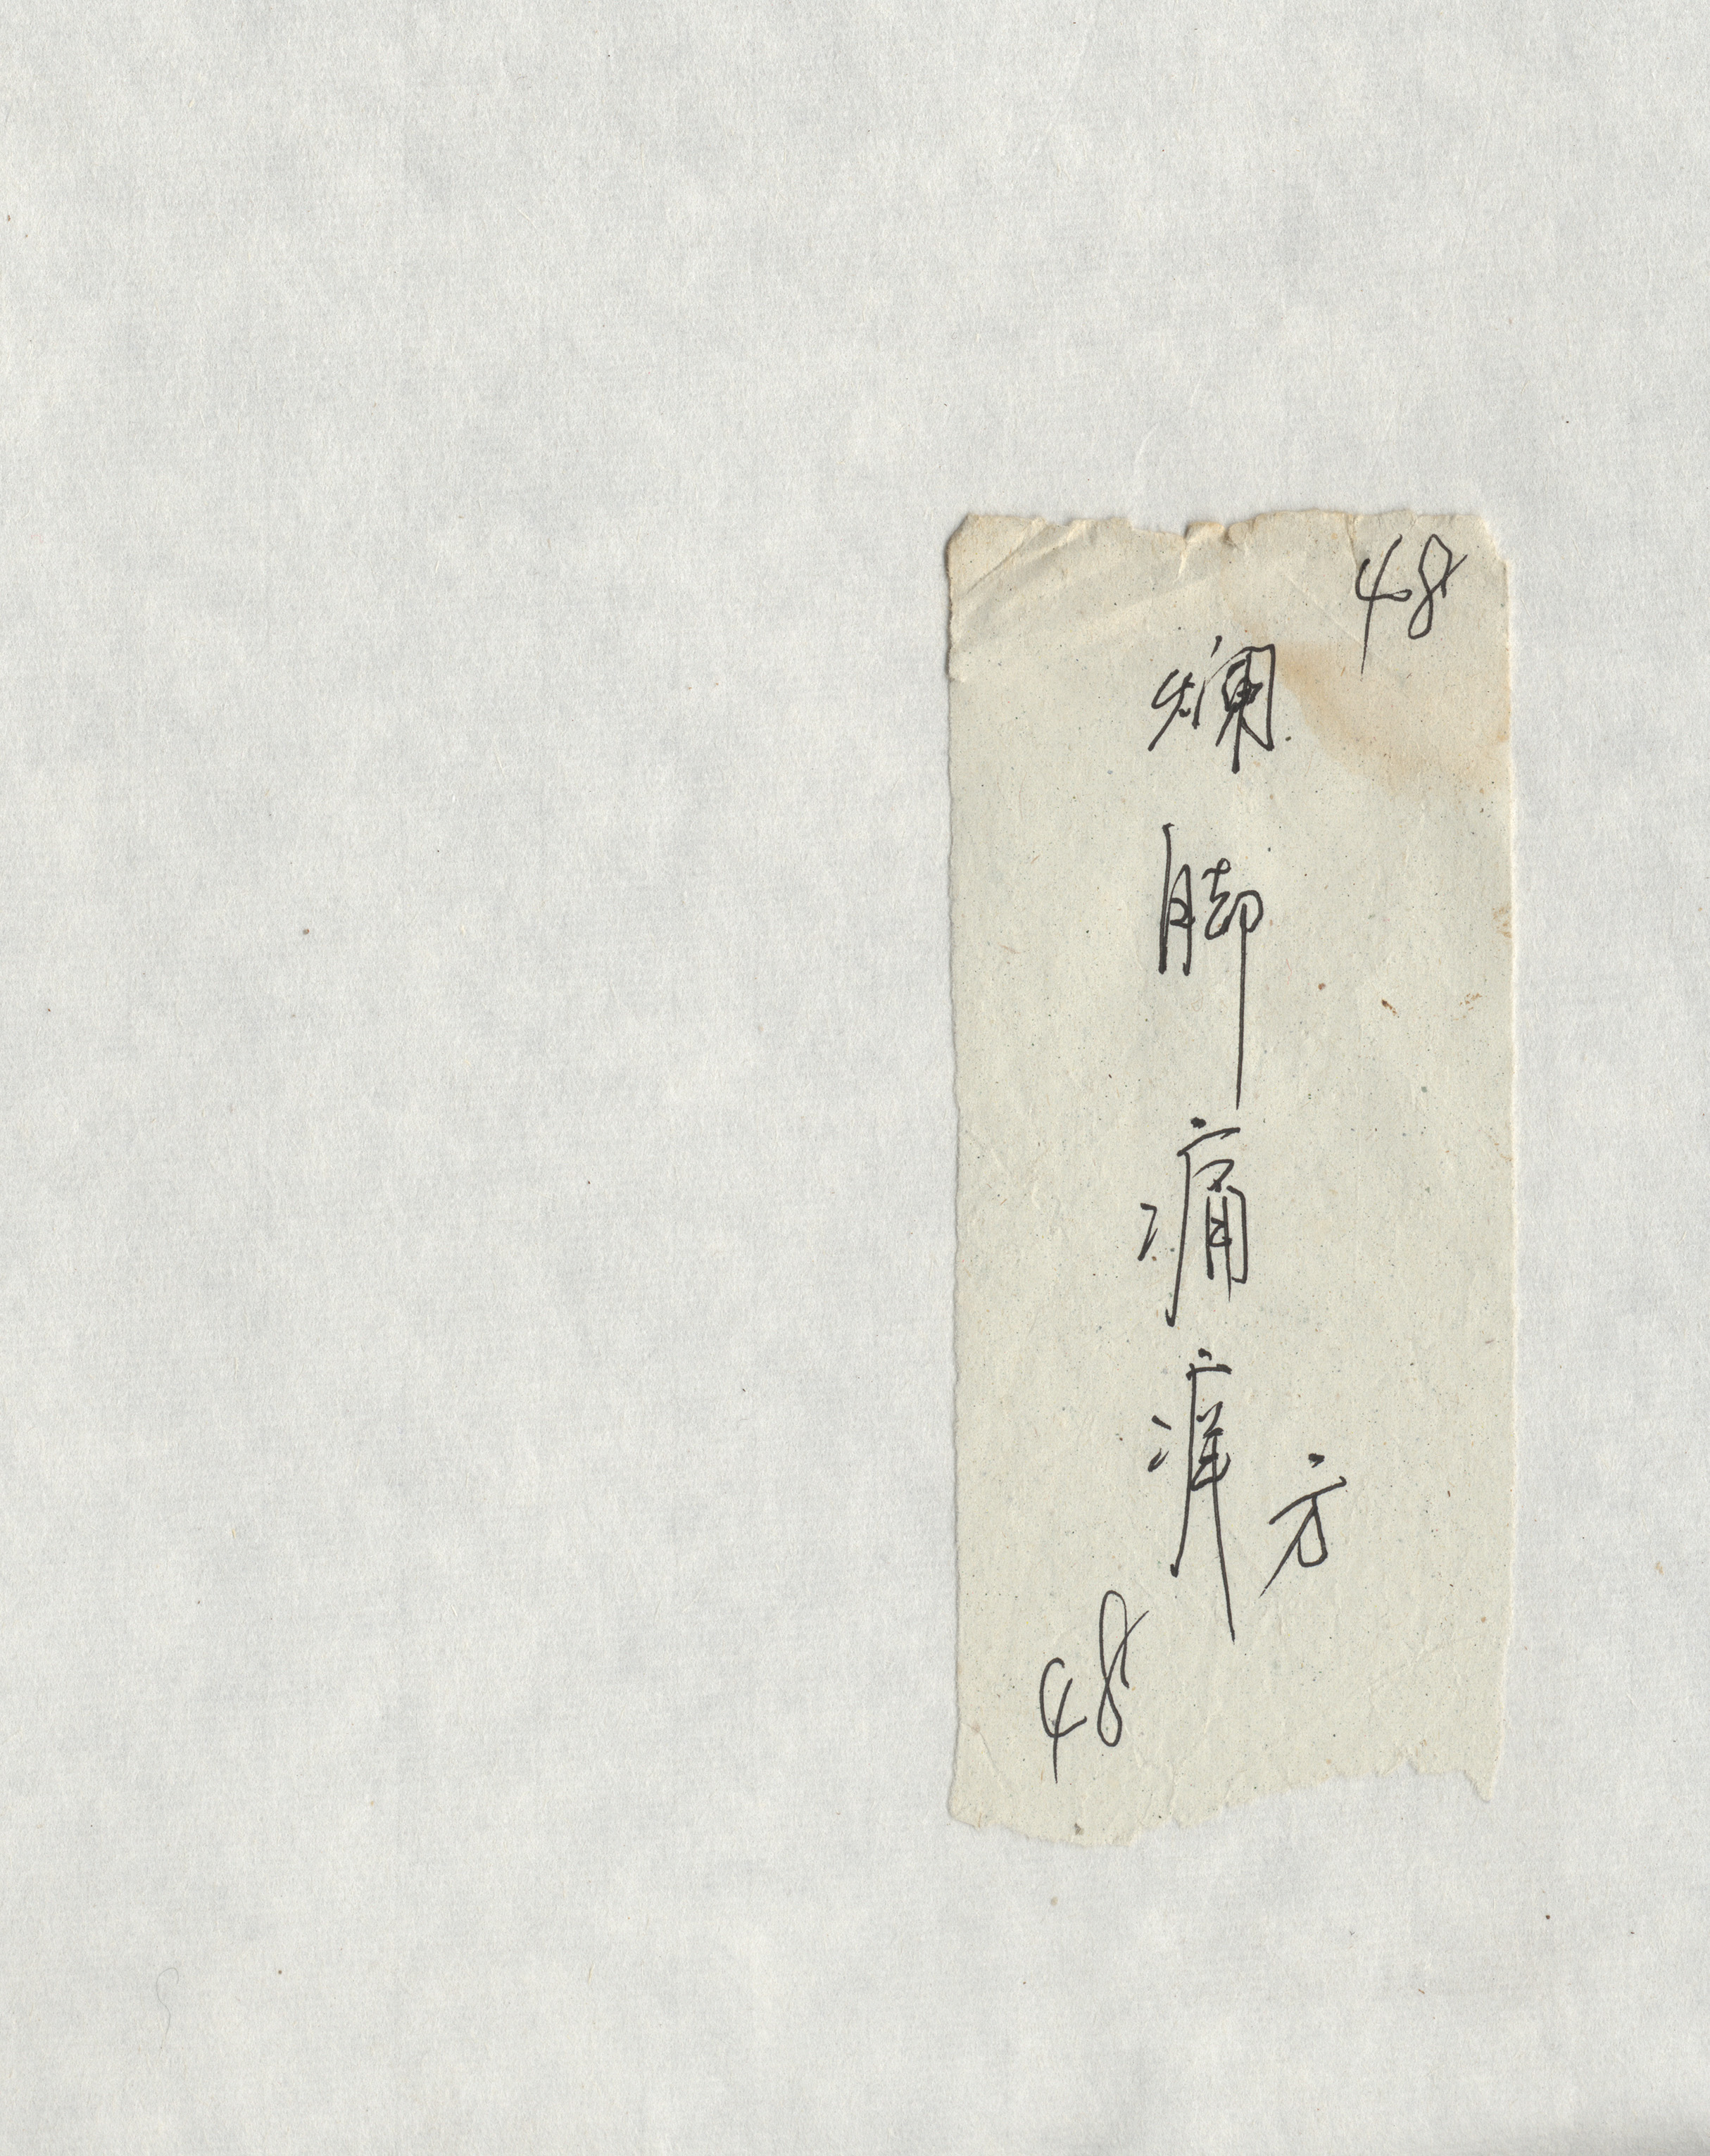 48
爛脚痛痒方
48